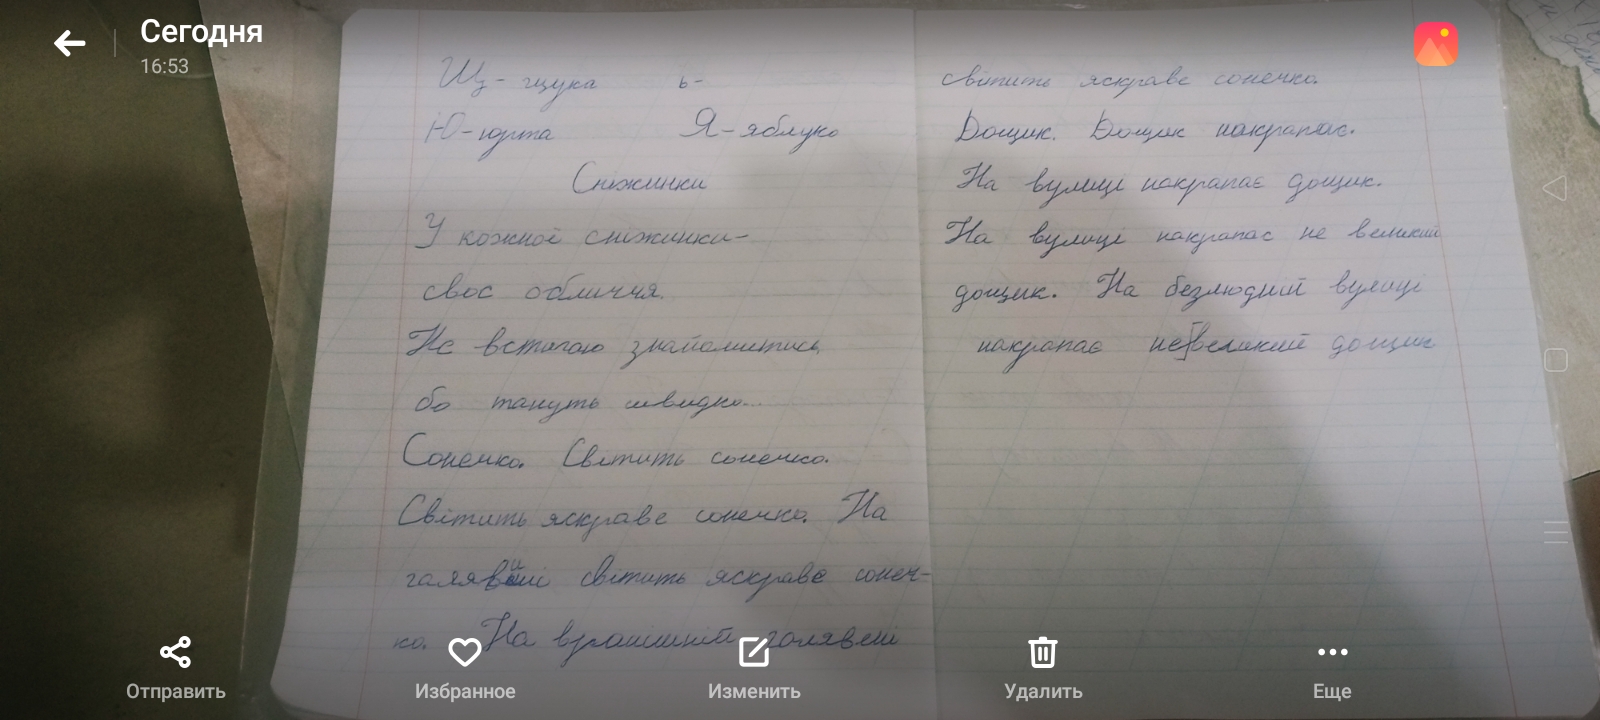 Сегодня
16:53
Щ - щука ь-
Ю - юрта Я - яблуко
Сніжинки
У кожної сніжинки-
своє обличчя.
Не встигаю знайомитись
бо тануть швидко...
Сонечко. Світить сонечко.
Світить яскраве сонечко. На
галявині світить яскраве сонеч-
ко. На вранішній галявені
світить яскраве сонечко.
Дощик. Дощик накрапає.
На вулиці накрапає дощик.
На вулиці накрапає не великий
дощик. На безлюдній вулиці
накрапає не великий дощик
Отправить
Избранное
Изменить
Удалить
Еще